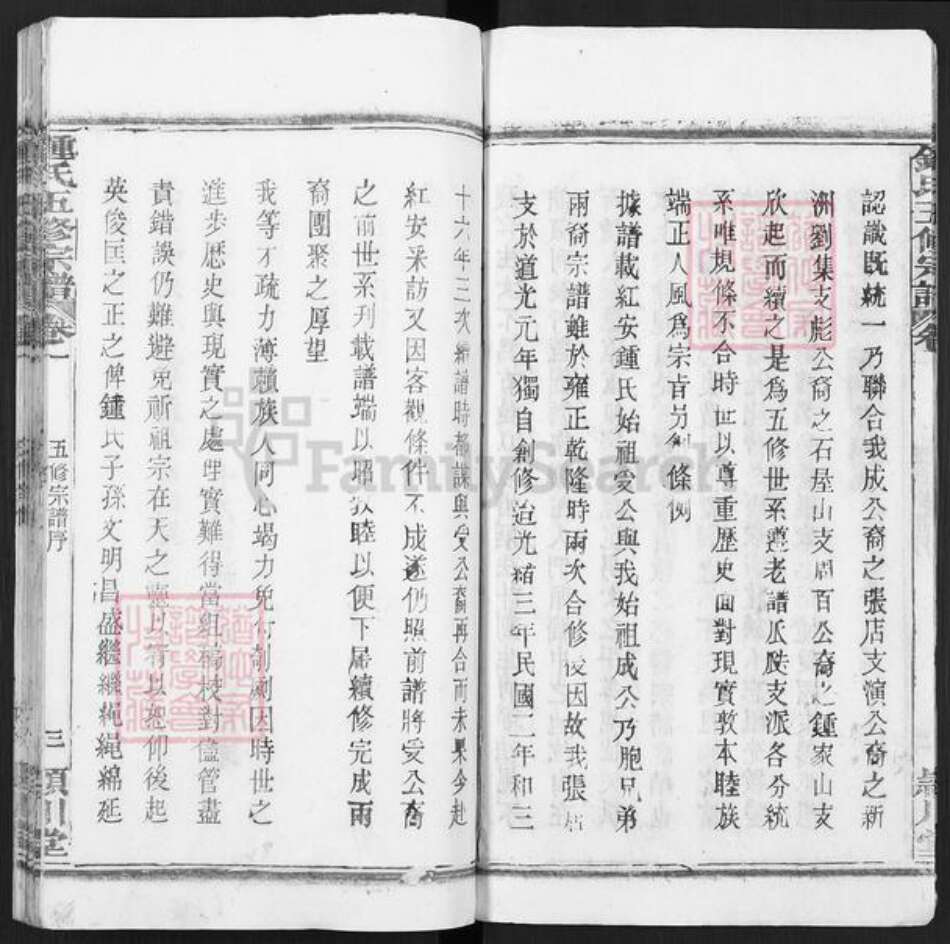 認識既統一乃聯合我成公裔之張店支演公裔之新
洲劉集支彪公裔之石屋山支周百公裔之鍾家山支
欣起而續之是為五修世系遵老譜瓜瓞支派各分統
系唯規條不合時世以尊重歷史面對現實敦本睦族
端正人風為宗旨另創條例
據譜載紅安鍾氏始祖受公與我始祖成公乃胞兄弟
兩裔宗譜雖於雍正乾隆時兩次合修後因故我張店
支於道光元年獨自創修迨光緒三年民國二年和三
十六年三次編譜時都謀與受公裔再合而未果今赴
紅安采訪又因客觀條件不成遂仍照前譜將受公裔
之前世系刊載譜端以昭敦睦以便下屆續修完成兩
裔團聚之厚望
我等才疏力薄賴族人同心竭力克行制劂因時世之
進步歷史與現實之處理實難得當組稿校對儘管盡
責錯誤仍難避免祈祖宗在天之靈以宥以恕仰後起
英俊匡之正之俾鍾氏子孫文明昌盛繼繼繩繩綿延
鍾氏五修宗譜 卷一
五修宗譜序
三
潁川堂
FamilySearch